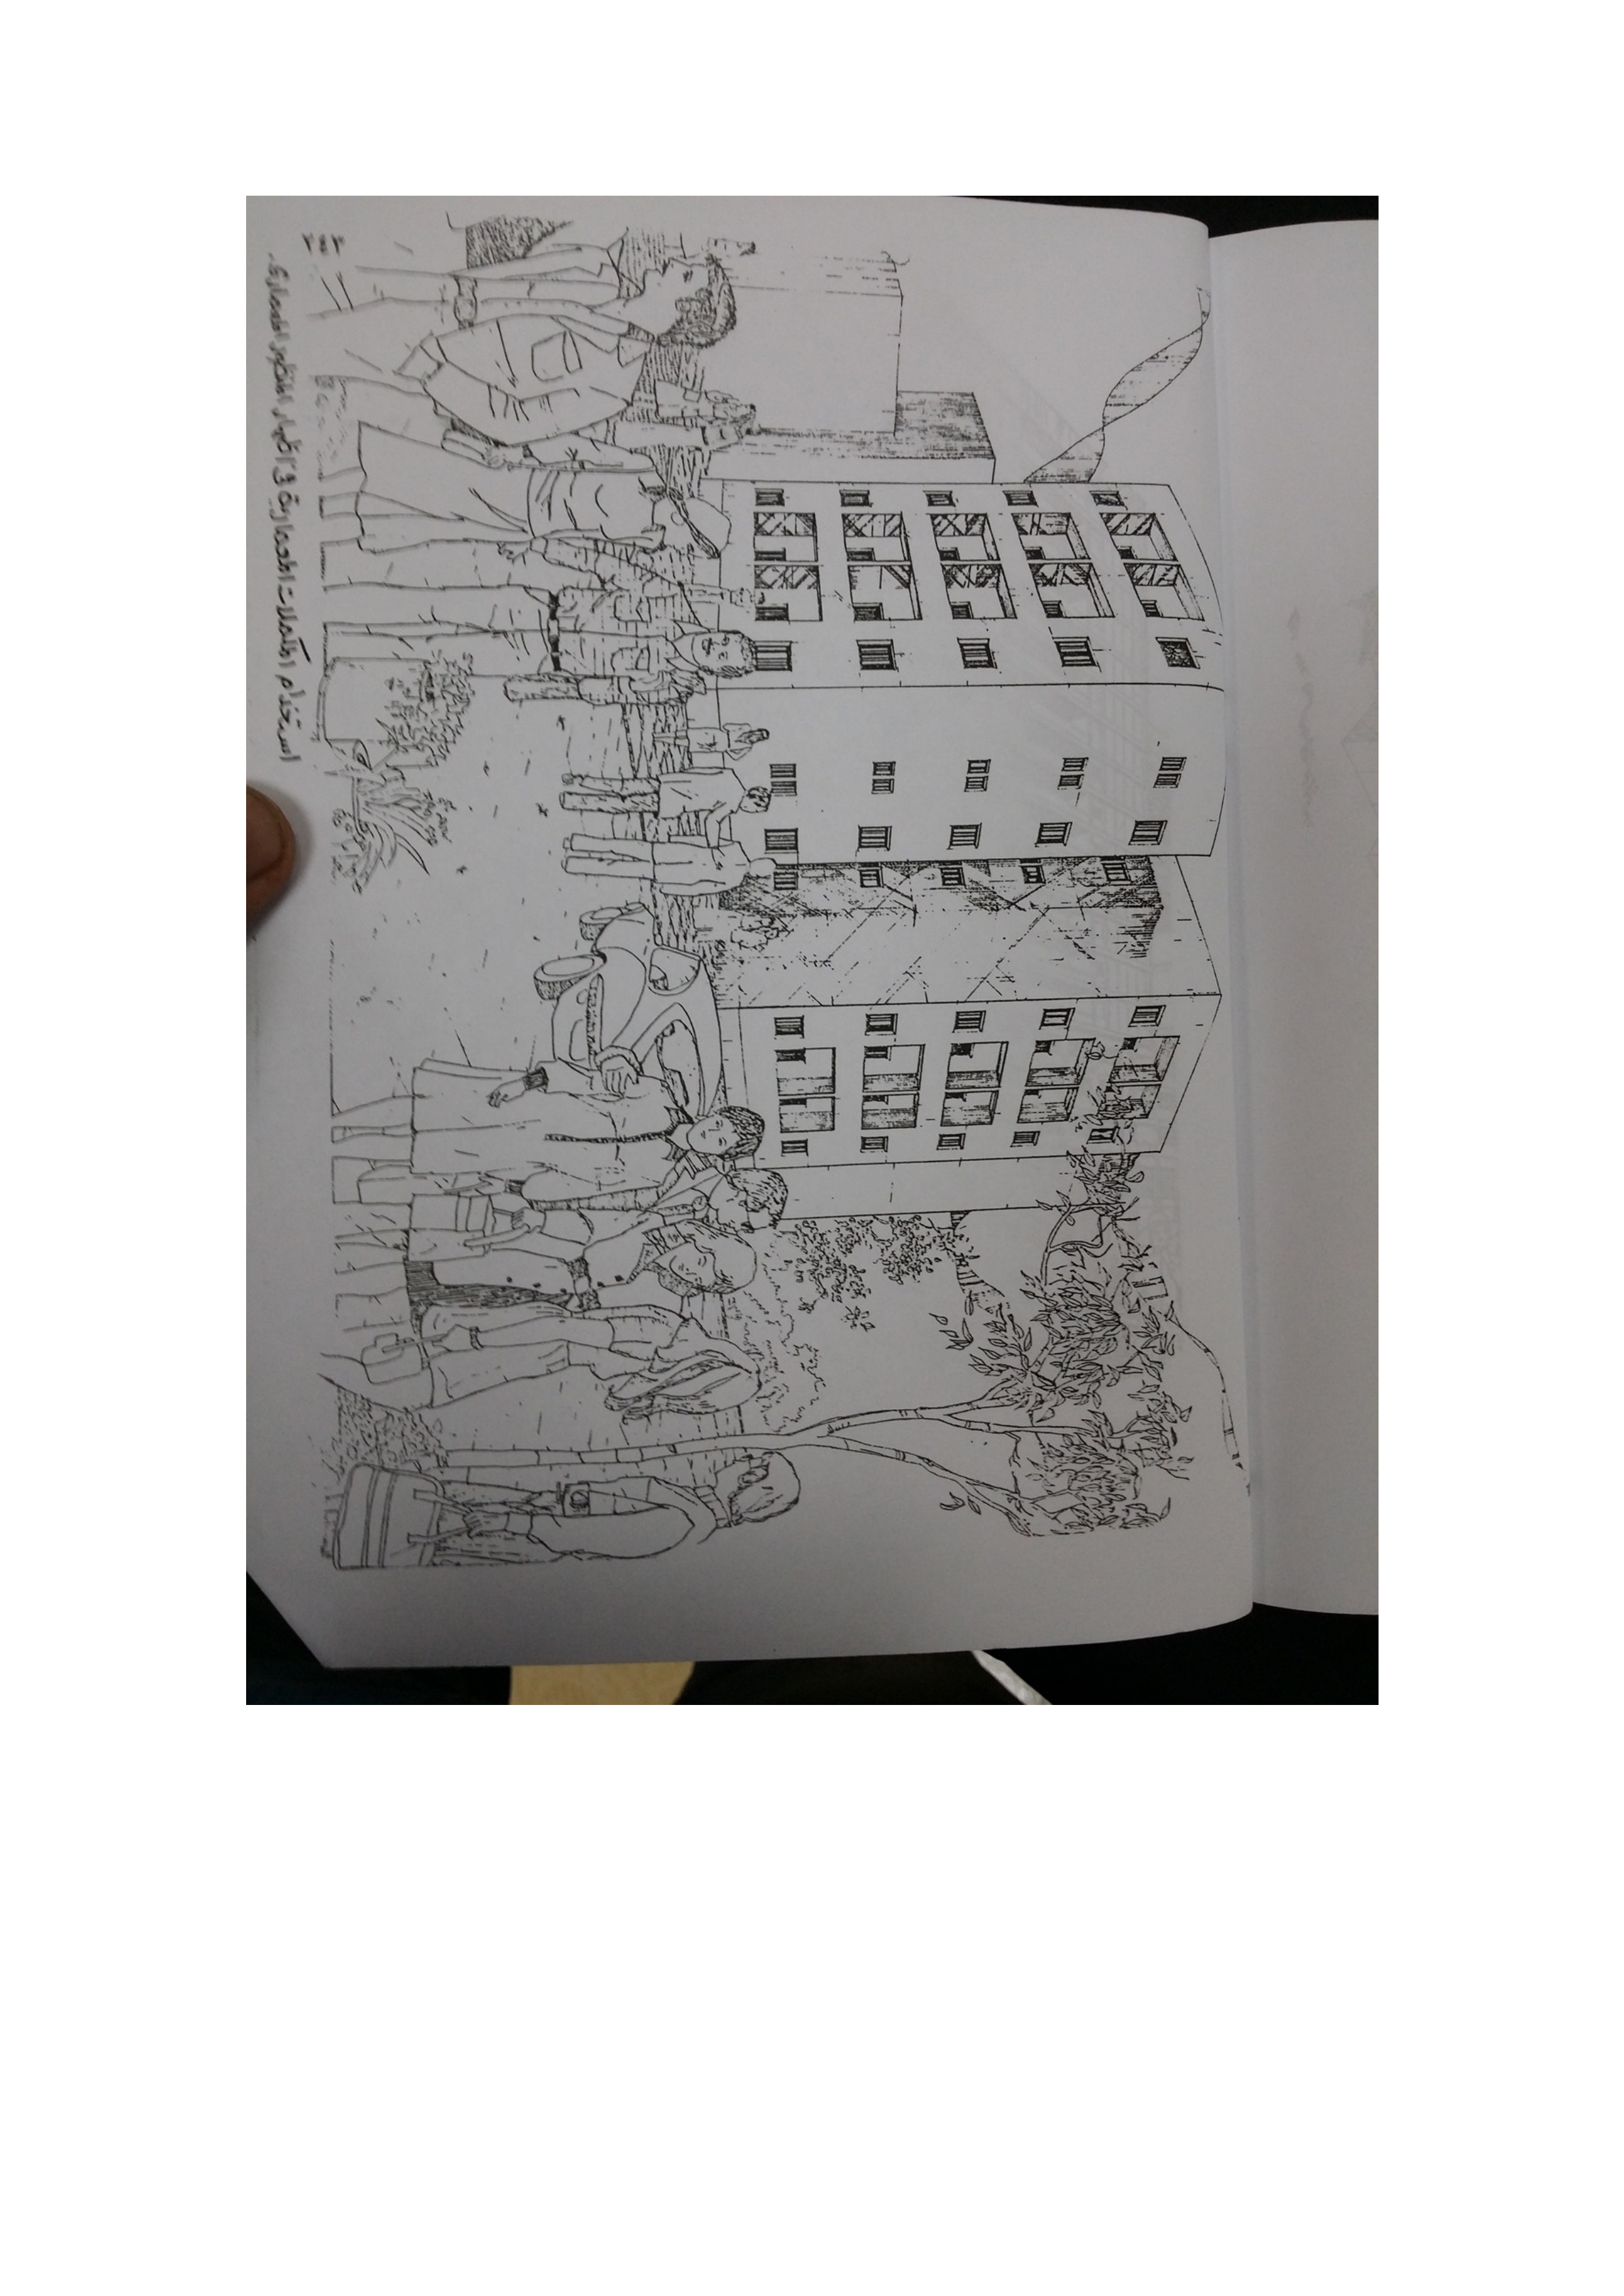 استخدام المكملات المعمارية في اظهار المنظور المعمارى.
٢٤٣